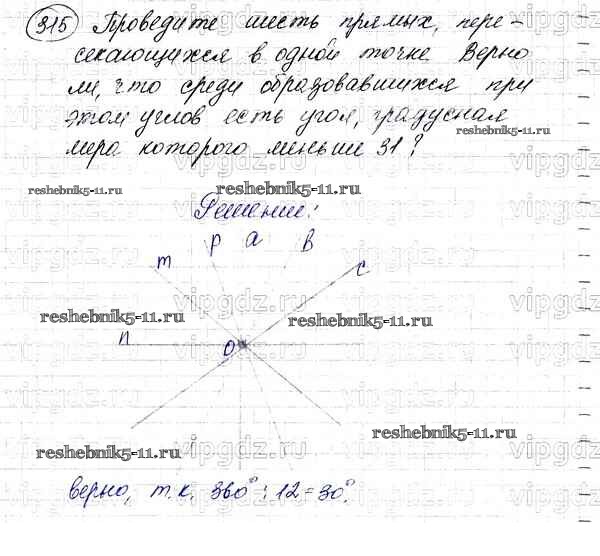 315 Проведите шесть прямых, пере-
секающихся в одной точке Верно
ли, что среди образовавшихся при
этом углов есть угол, градусная
мера которого меньше 31?
reshebnik5-11.ru
reshebnik5-11.ru
reshebnik5-11.ru
Решение:
m p a b c
reshebnik5-11.ru
reshebnik5-11.ru
n O
reshebnik5-11.ru
reshebnik5-11.ru
верно, т.к. 360° : 12 = 30°.
vipgdz.ru